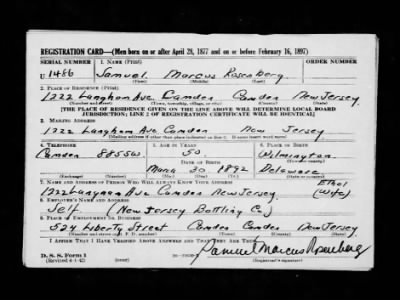 REGISTRATION CARD—(Men born on or after April 28, 1877 and on or before February 16, 1897)
SERIAL NUMBER 1. NAME (Print) ORDER NUMBER
U 1486 Samuel Marcus Rosenberg
(First) (Middle) (Last)
2. PLACE OF RESIDENCE (Print)
1222 Langham Ave Camden Camden New Jersey
(Number and street) (Town, township, village, or city) (County) (State)
[THE PLACE OF RESIDENCE GIVEN ON THE LINE ABOVE WILL DETERMINE LOCAL BOARD
JURISDICTION; LINE 2 OF REGISTRATION CERTIFICATE WILL BE IDENTICAL]
3. MAILING ADDRESS
1222 Langham Ave Camden New Jersey
(Mailing address if other than place indicated on line 2. If same insert word same)
4. TELEPHONE 5. AGE IN YEARS 6. PLACE OF BIRTH
Camden 8855W 50 Wilmington
DATE OF BIRTH (Town or county)
March 30 1892 Delaware
(Exchange) (Number) (Mo.) (Day) (Yr.) (State or country)
7. NAME AND ADDRESS OF PERSON WHO WILL ALWAYS KNOW YOUR ADDRESS Ethel
1222 Langham Ave Camden New Jersey (Wife)
8. EMPLOYER'S NAME AND ADDRESS
Self (New Jersey Bottling Co)
9. PLACE OF EMPLOYMENT OR BUSINESS
524 Liberty Street Camden Camden New Jersey
(Number and street or R. F. D. number) (Town) (County) (State)
I AFFIRM THAT I HAVE VERIFIED ABOVE ANSWERS AND THAT THEY ARE TRUE.
D. S. S. Form 1 Samuel Marcus Rosenberg
(Revised 4-1-42) (Registrant's signature)